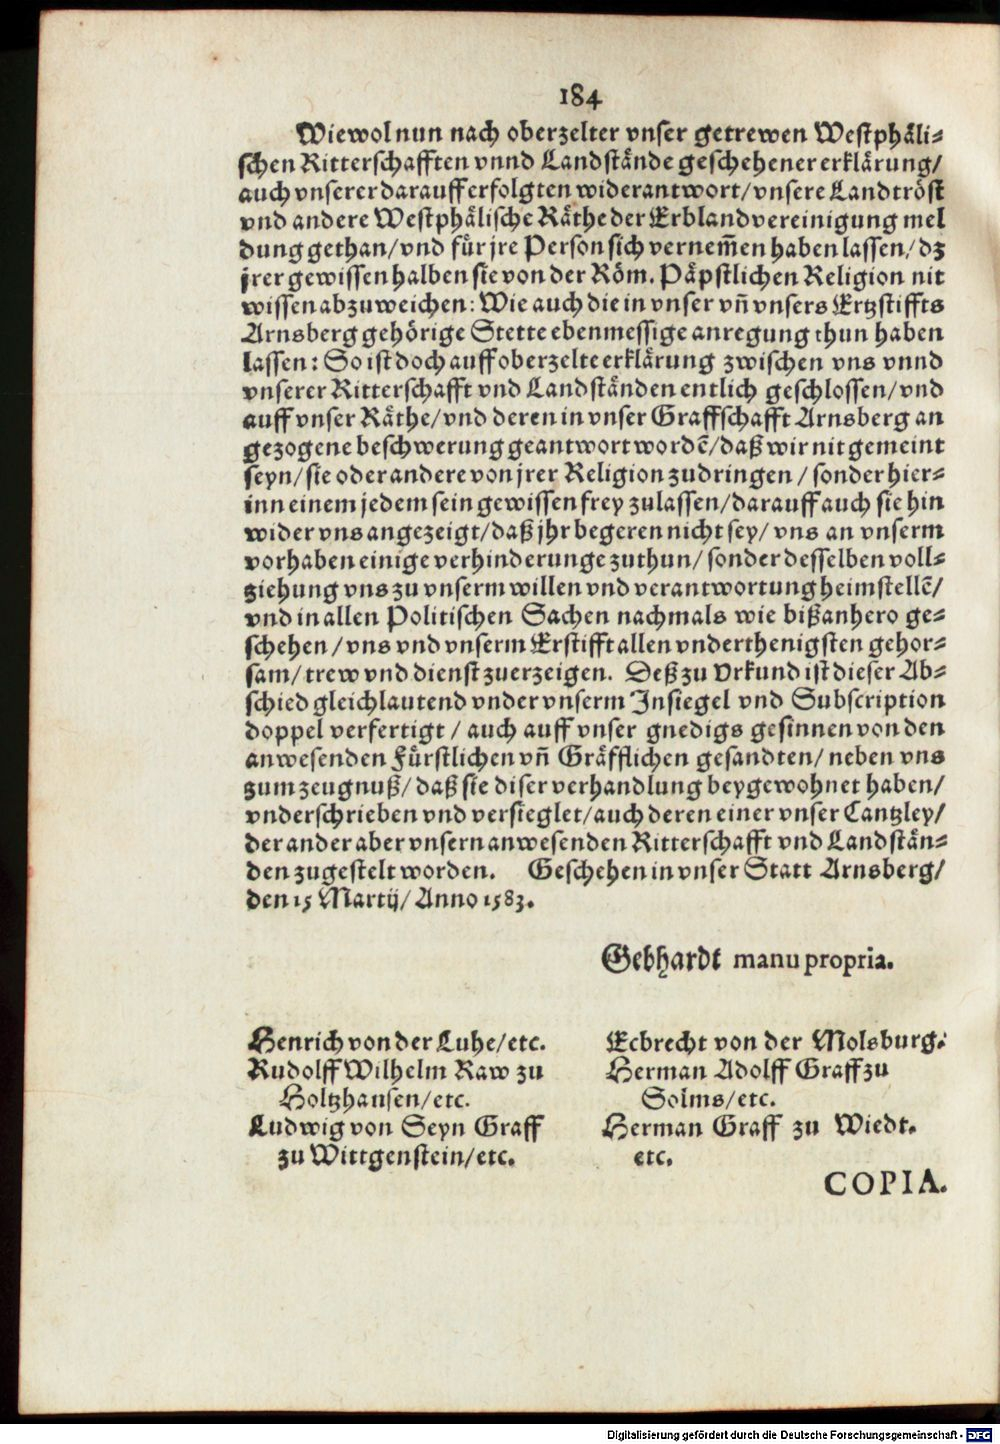 184
Wiewol nun nach oberzelter vnser getrewen Westphäli-
schen Ritterschafften vnnd Landstände geschehener erklärung/
auch vnserer darauff erfolgten widerantwort/ vnsere Landtröst
vnd andere Westphälische Räthe der Erblandvereinigung mel
dung gethan/ vnd für jre Person sich vernem̃en haben lassen/ dz
jrer gewissen halben sie von der Röm. Päpstlichen Religion nit
wissen abzuweichen: Wie auch die in vnser vñ vnsers Ertzstiffts
Arnsberg gehörige Stette ebenmessige anregung thun haben
lassen: So ist doch auff oberzelte erklärung zwischen vns vnnd
vnserer Ritterschafft vnd Landständen entlich geschlossen/ vnd
auff vnser Räthe/ vnd deren in vnser Graffschafft Arnsberg an
gezogene beschwerung geantwort wordẽ/ daß wir nit gemeint
seyn/ sie oder andere von jrer Religion zudringen/ sonder hier-
inn einem jedem sein gewissen frey zulassen/ darauff auch sie hin
wider vns angezeigt/ daß jhr begeren nicht sey/ vns an vnserm
vorhaben einige verhinderunge zuthun/ sonder desselben voll-
ziehung vns zu vnserm willen vnd verantwortung heimstellẽ/
vnd in allen Politischen Sachen nachmals wie bißanhero ge-
schehen/ vns vnd vnserm Erstifft allen vnderthenigsten gehor-
sam/ trew vnd dienst zuerzeigen. Deß zu Vrkund ist dieser Ab-
schied gleichlautend vnder vnserm Insiegel vnd Subscription
doppel verfertigt/ auch auff vnser gnedigs gesinnen von den
anwesenden Fürstlichen vñ Gräfflichen gesandten/ neben vns
zum zeugnuß/ daß sie diser verhandlung beygewohnet haben/
vnderschrieben vnd versieglet/ auch deren einer vnser Cantzley/
der ander aber vnsern anwesenden Ritterschafft vnd Landstän-
den zugestelt worden. Geschehen in vnser Statt Arnsberg/
den 15 Martij/ Anno 1583.
Gebhardt manu propria.
Henrich von der Luhe/ etc.
Rudolff Wilhelm Raw zu
Holtzhausen/ etc.
Ludwig von Seyn Graff
zu Wittgenstein/ etc.
Ecbrecht von der Molsburg.
Herman Adolff Graff zu
Solms/ etc.
Herman Graff zu Wiedt.
etc.
COPIA.
Digitalisierung gefördert durch die Deutsche Forschungsgemeinschaft - DFG